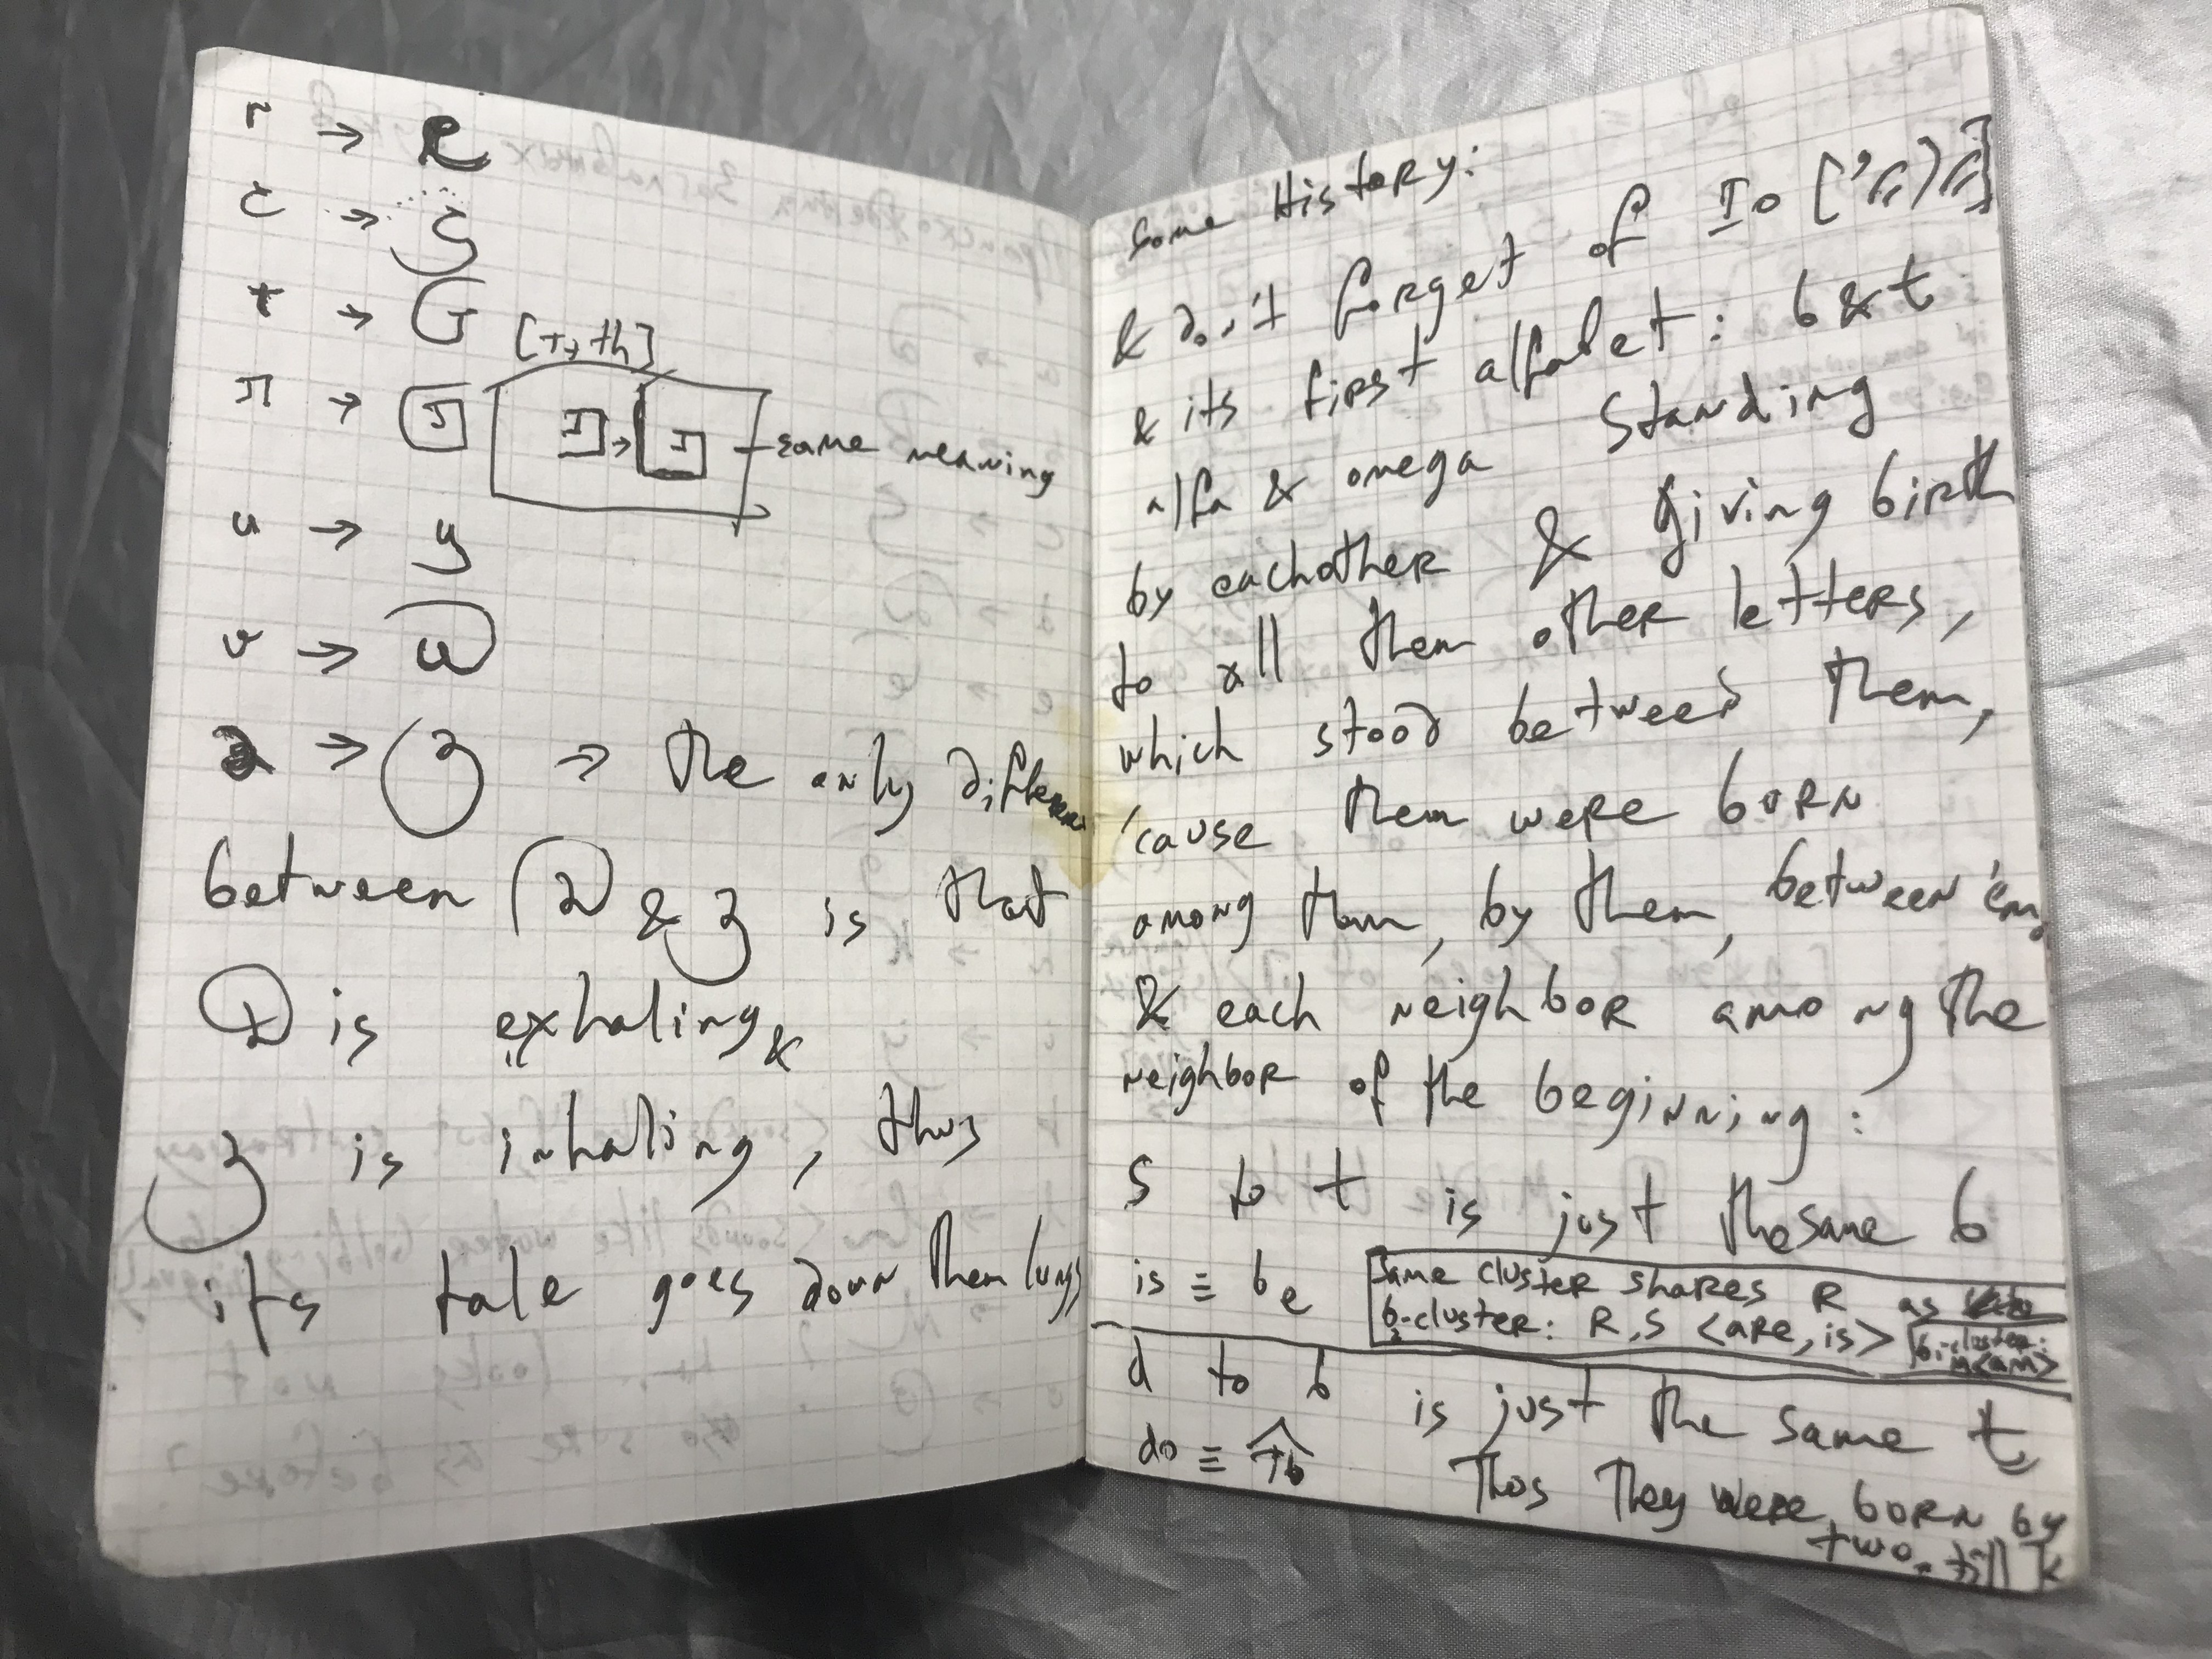 r → R
c → S
t → G [Tth]
π → J J → J same meaning
u → y
v → w
→ 3 → The only difference
between 2 & 3 is that
2 is exhaling &
3 is inhaling, thus
its tale goes down them lungs
Some History: of Io
& don't forget
& its first alfabet: b & t
alfa & omega Standing
by eachother & giving birth
to all them other letters,
which stood between them,
'cause them were born
among them, by them, between 'em
& each neighbor among the
neighbor of the beginning:
s to t is just the same b
is ≡ be
Same cluster shares R as
b-cluster: R, S <are, is>
b-cluster: m<am>
d to b is just the same t
do ≡ to Thos They were born by
two